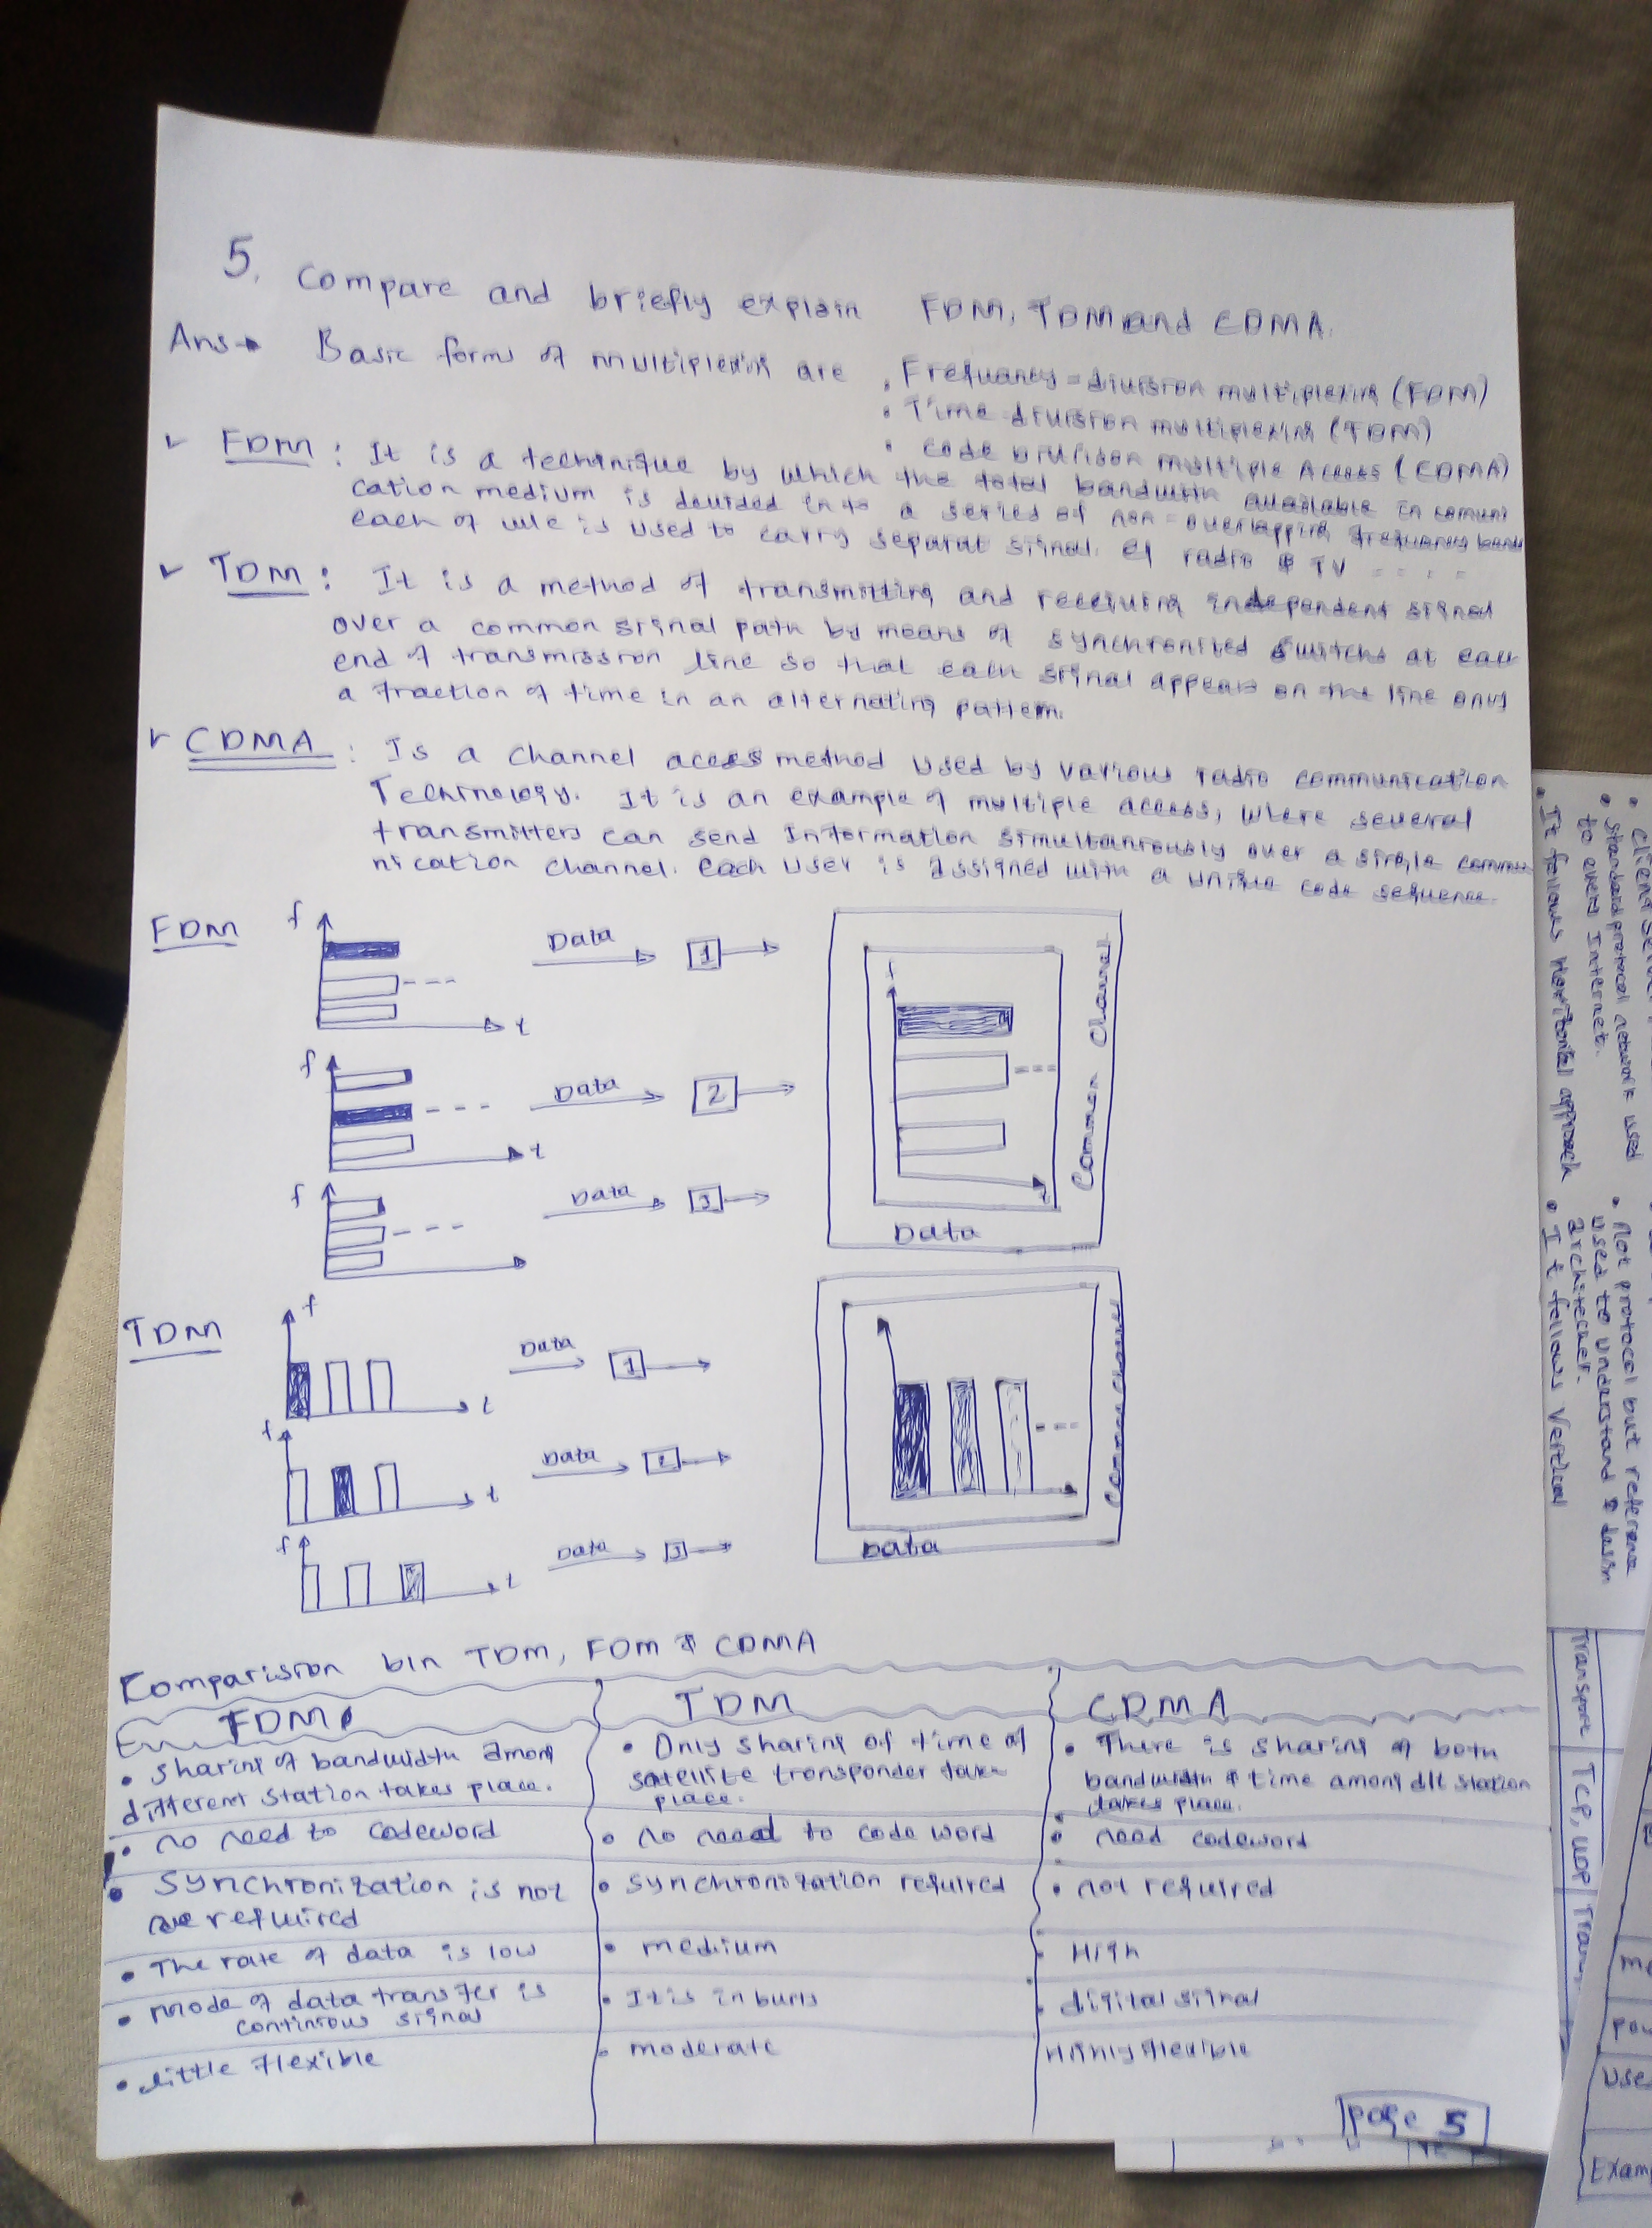 5. Compare and briefly explain FDM, TDM and CDMA.
Ans Basic forms of multiplexing are
. Frequancy-division multiplexing (FDM)
. Time division multiplexing (TDM)
. Code Multiple Access (CDMA)
✓ FDM : It is a technique by which the total available in comuni
cation medium is devided in to a series of non-overlapping frequancy bands
each of is used to carry separat signal. eg radio & TV - - - -
✓ TDM : It is a method of transmitting and receiving independent signal
over a common signal path by means of synchronized switchs at each
end of transmission line so that each signal appears on the line only
a fraction of time in an alternating pattern.
✓ CDMA : Is a channel access method used by various radio communication
Technology. It is an example of multiple access, where several
transmitters can send Information simultaneously over a single commu
nication channel. Each user is assigned with a unique code sequence.
FDM
f
t
Data
1
f
t
Data
2
f
Data
3
f
t
Data
Common Channel
TDM
f
t
Data
1
f
t
Data
2
f
t
Data
3
Data
Common Channel
Comparision btn TDM, FDM & CDMA
FDM
TDM
CDMA
• Sharing of bandwidth among
different station takes place.
• Only sharing of time of
satellite transponder takes
place.
• There is sharing of both
bandwidth & time among station
takes place.
• no need to codeword
• no need to code word
• need codeword
• Synchronization is not
required
• synchronization required
• not required
• The rate of data is low
• medium
• High
• mode of data transfer is
continious signal
• It is in
• digital signal
• little flexible
• moderate
Highly flexible
page 5
• standard protocol network used
to every Internet.
• It follows Horizontal approach
• Not protocol but reference
used to understand &
• It follows Vertical
Transport
TCP, UDP
Trans
Use
Exam